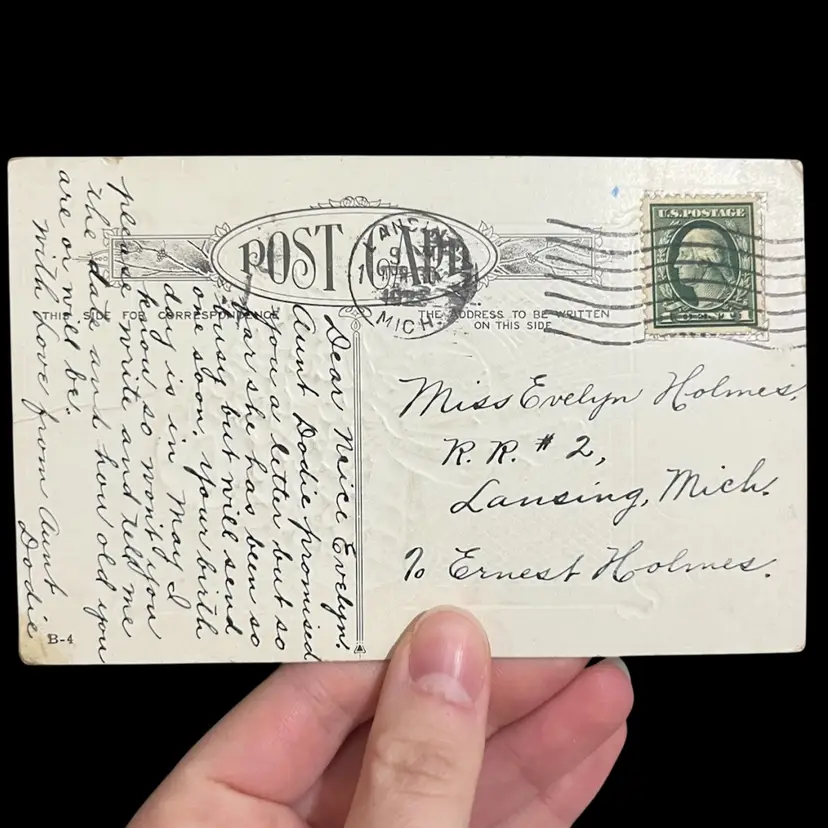 POST CARD
THIS SIDE FOR CORRESPONDENCE
THE ADDRESS TO BE WRITTEN
ON THIS SIDE
LANSING
MICH.
U.S. POSTAGE
1
Miss Evelyn Holmes,
R. R. # 2,
Lansing, Mich.
% Ernest Holmes.
Dear Neice Evelyn:
Aunt Dodie promised
you a letter but so
far she has been so
busy but will send
one soon. Your birth
day is in May I
know so won't you
please write and tell me
the date and how old you
are or will be.
With Love from Aunt
Dodie
B-4